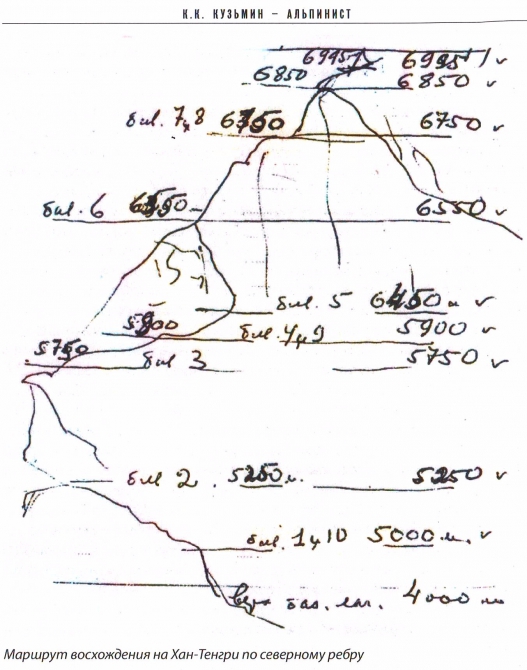 К.К. КУЗЬМИН – АЛЬПИНИСТ
6995 6995
6850 6850
бив. 7,8 6750 6750
бив. 6 6550 6550
бив. 5 6450 м
5900 бив. 4 и 9 5900
5750 бив. 3 5750
бив. 2. 5250 м. 5250
бив. 1 и 10 5000 м.
баз. лаг. 4000 м
Маршрут восхождения на Хан-Тенгри по северному ребру